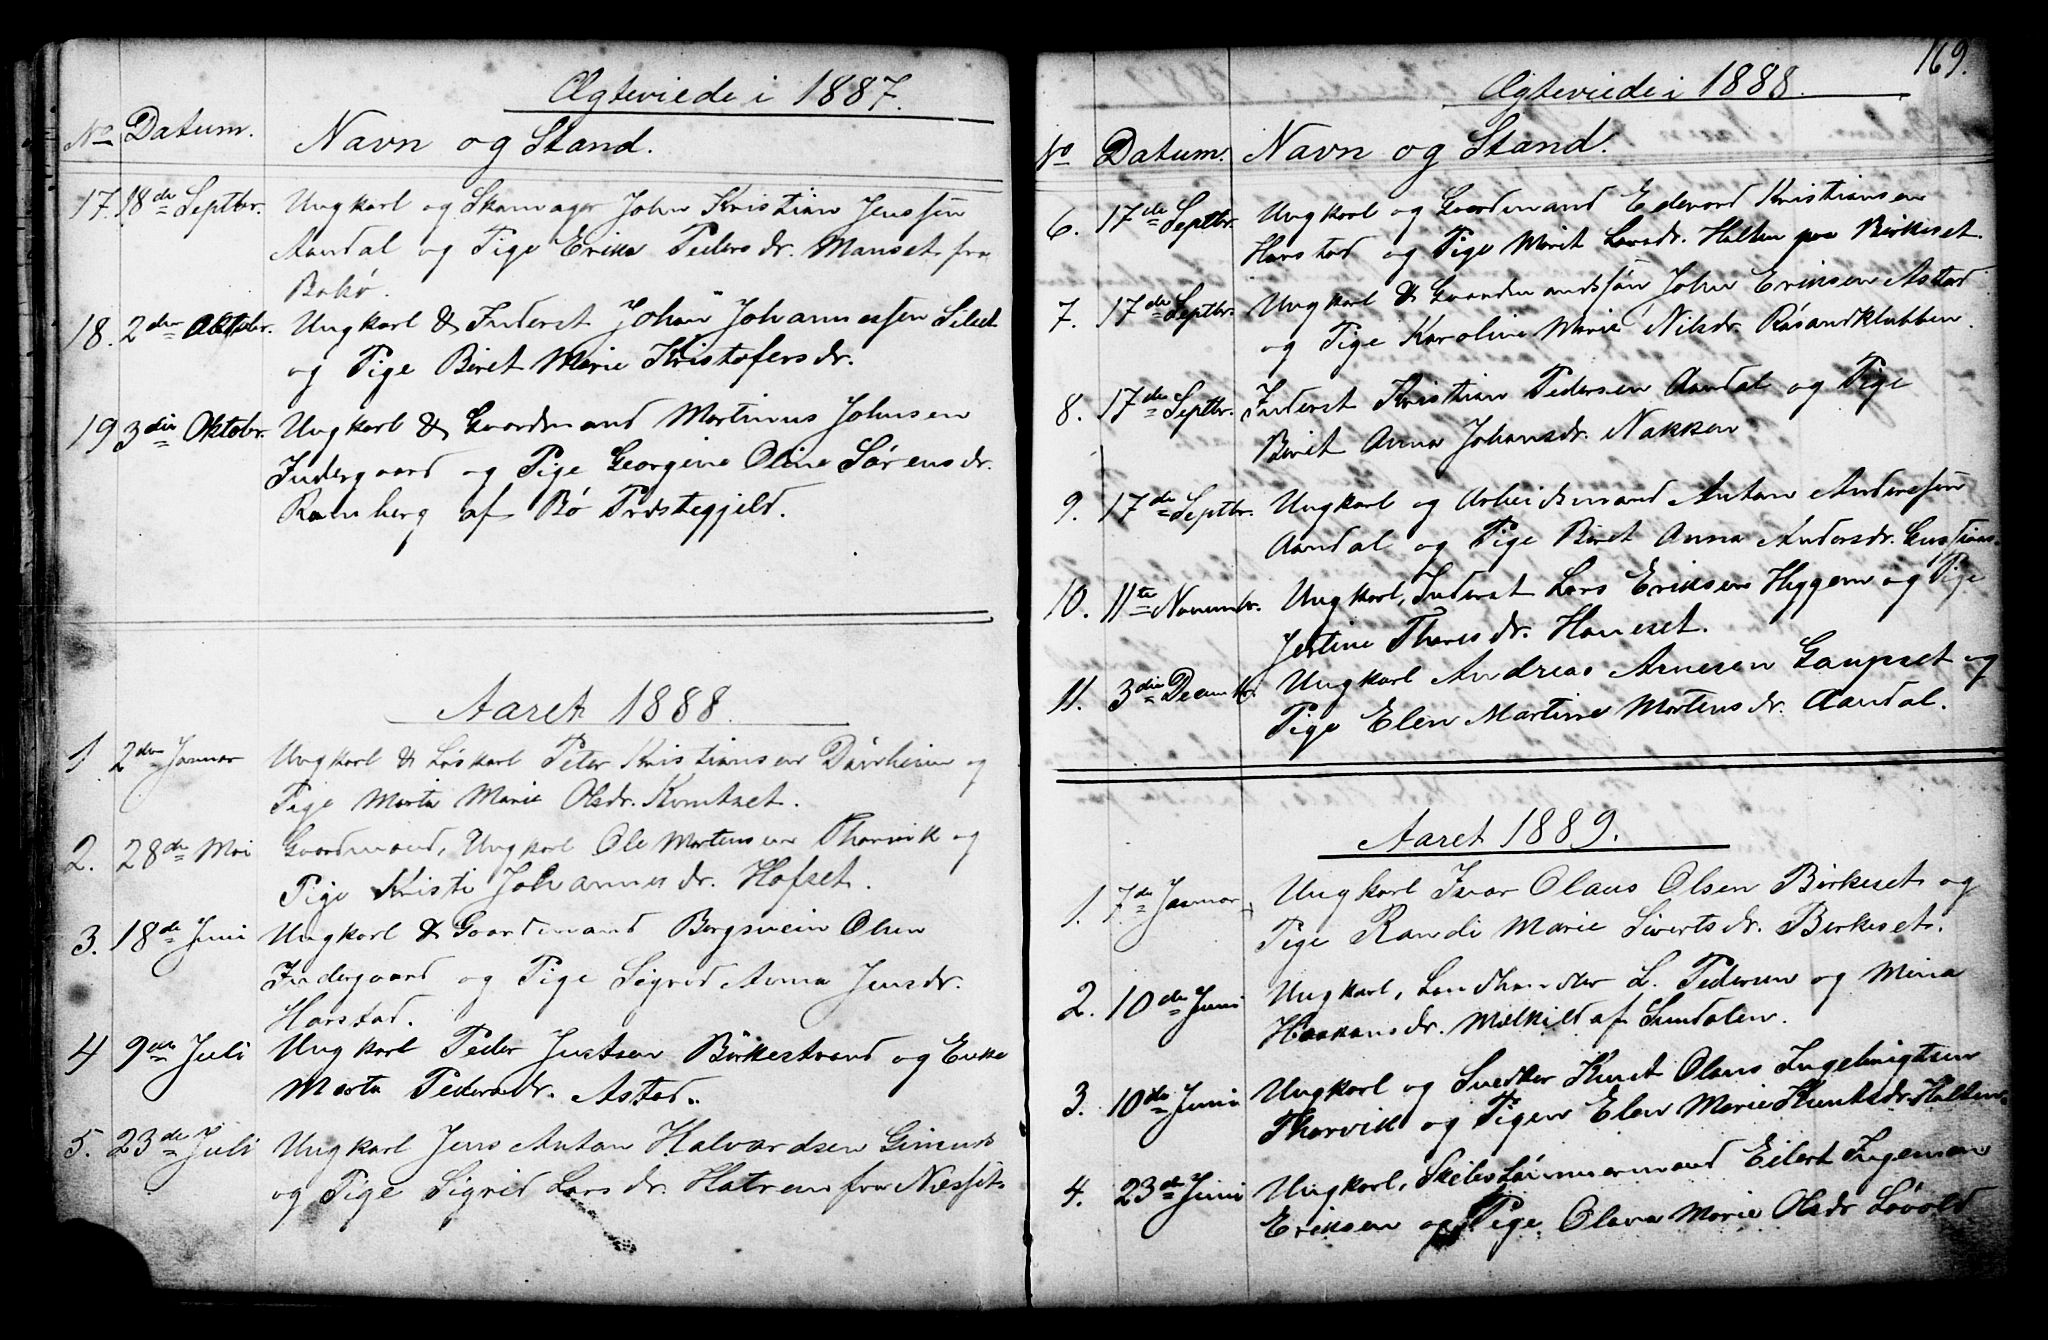 Ægteviede i 1887.
No Datum. Navn og Stand.
17. 18de Septbr. Ungkarl og Skomager John Kristian Jenssen
Aandal og Pige Erika Pedersdr. Manset fra
Bolsø.
18. 2den Oktobr. Ungkarl & Inderst Johan Johannessen Silset
og Pige Beret Marie Kristofersdr.
19 3die Oktobr. Ungkarl & Gaardmand Martinus Johnsen
Indergaard og Pige Georgine Oline Sørensdr.
Ramberg af Bø Præstegjeld.
Aaret 1888
1. 2den Januar Ungkarl & Løskarl Peter Kristiansen Dørrheim og
Pige Marta Marie Olsdr. Korntset.
2. 28de Mai Gaardmand, Ungkarl Ole Mortensen Thorvik og
Pige Kristi Johannesdr. Hofset.
3. 18de Juni Ungkarl & Gaardmand Bergsvein Olsen
Indergaard og Pige Sigrid Anna Jensdr.
Harstad.
4 9de Juli Ungkarl Peder Justsen Birkestrand og Enke
Marta Pedersdr. Astad.
5. 23de Juli Ungkarl Jens Antan Halvardsen Gimnes
og Pige Sigrid Larsdr. Hatrem fra Næsset.
169.
Ægteviede i 1888.
No Datum. Navn og Stand.
6. 17de Septbr. Ungkarl og Gaardmand Edevard Kristiansen
Harstad og Pige Marit Larsdr. Halten paa Birkeset.
7. 17de Septbr. Ungkarl & Gaardmandssøn John Eriksen Astad
og Pige Karoline Marie Nilsdr. Røsandklubben.
8. 17de Septbr. Inderst Kristian Pedersen Aandal og Pige
Berit Anna Johansdr. Nakken
9. 17de Septbr. Ungkarl og Arbeidsmand Antan Anderssen
Aandal og Pige Beret Anna Andersdr.
10. 11te Novembr. Ungkarl, Inderst Lars Eriksen Heggem og Pige
Jertine Tharesdr. Haneset.
11. 3die Decembr Ungkarl Andreas Arnesen Gaupset og
Pige Elen Martine Mortensdr. Aandal.
Aaret 1889.
1. 7de Januar Ungkarl Ivar Olaus Olsen Birkeset og
Pige Randi Marie Sivertsdr. Birkeset.
2. 10de Juni Ungkarl, Landhandler L. Pedersen og Mina
Haakansdr. Mælkild af Sundalen.
3. 10de Juni Ungkarl og Snedker Knut Olaus Ingebrigtsen
Thorvik og Pigen Elen Marie Knutsdr. Halten.
4. 23de Juni Ungkarl, Skibstømmermand Eilert Ingeman
Eriksen og Pige Olava Marie Olsdr Løvold